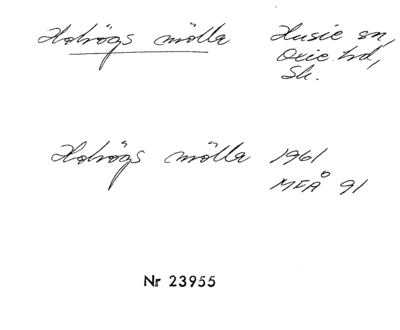 Hohögs mölla Husie sn,
Oxie hd,
Sk.
Hohögs mölla 1961
MFÅ 91
Nr 23955